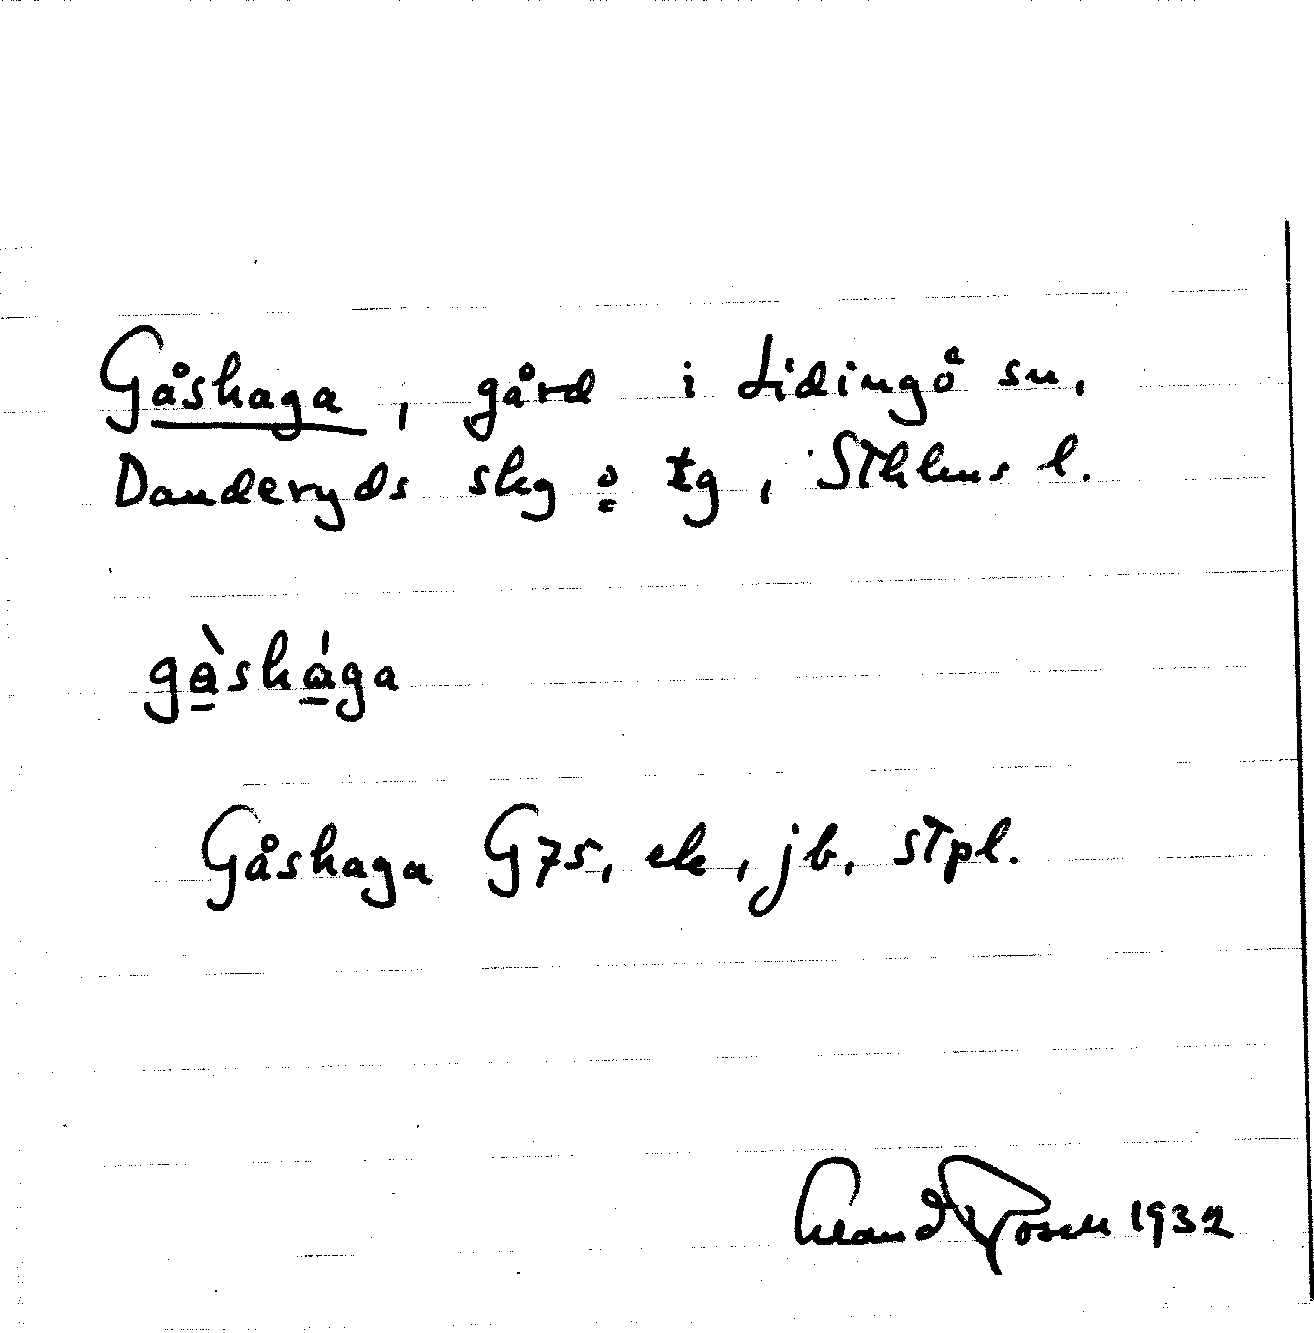 Gåshaga, gård i Lidingö sn,
Danderyds skg o tg, Sthlms l.
gàshága
Gåshaga G75, ek, jb, stpl.
1932